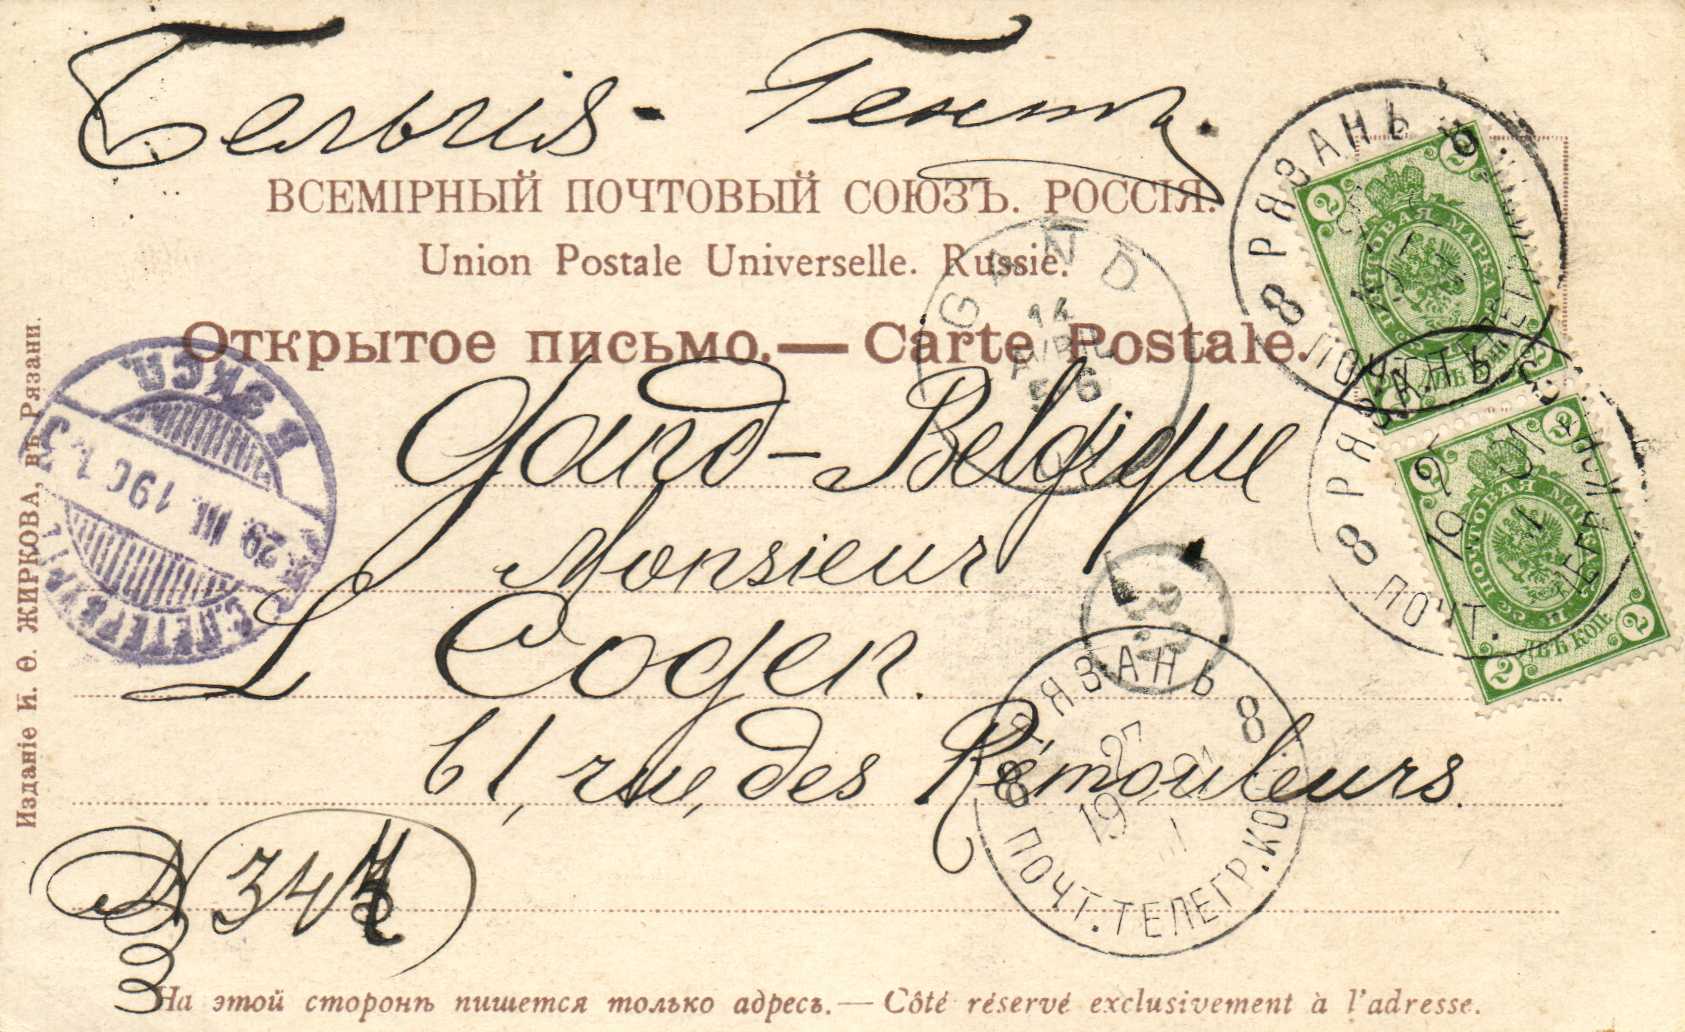 Бельгія - Гентъ.
ВСЕМІРНЫЙ ПОЧТОВЫЙ СОЮЗЪ. РОССІЯ.
Union Postale Universelle. Russie.
Открытое письмо.—Carte Postale.
Gand - Belgique
Monsieur
L Cogen.
61, rue, des Rémouleurs.
N 347
На этой сторонѣ пишется только адресъ.—Côté réservé exclusivement à l'adresse.
Изданіе И. Ѳ. ЖИРКОВА, въ Рязани.
РЯЗАНЬ
8 ПОЧТ.
ПОЧТОВАЯ МАРКА
2
ДВѢ КОП.
РЯЗАНЬ
8 ПОЧТ.
19 01
ПОЧТОВАЯ МАРКА
2
ДВѢ КОП.
GAND
14
AVRIL
5-6
С.ПЕТЕРБУРГЪ
29. III. 1901. 3
8 РЯЗАНЬ 8
27
19 01
III
ПОЧТ. ТЕЛЕГР. КО